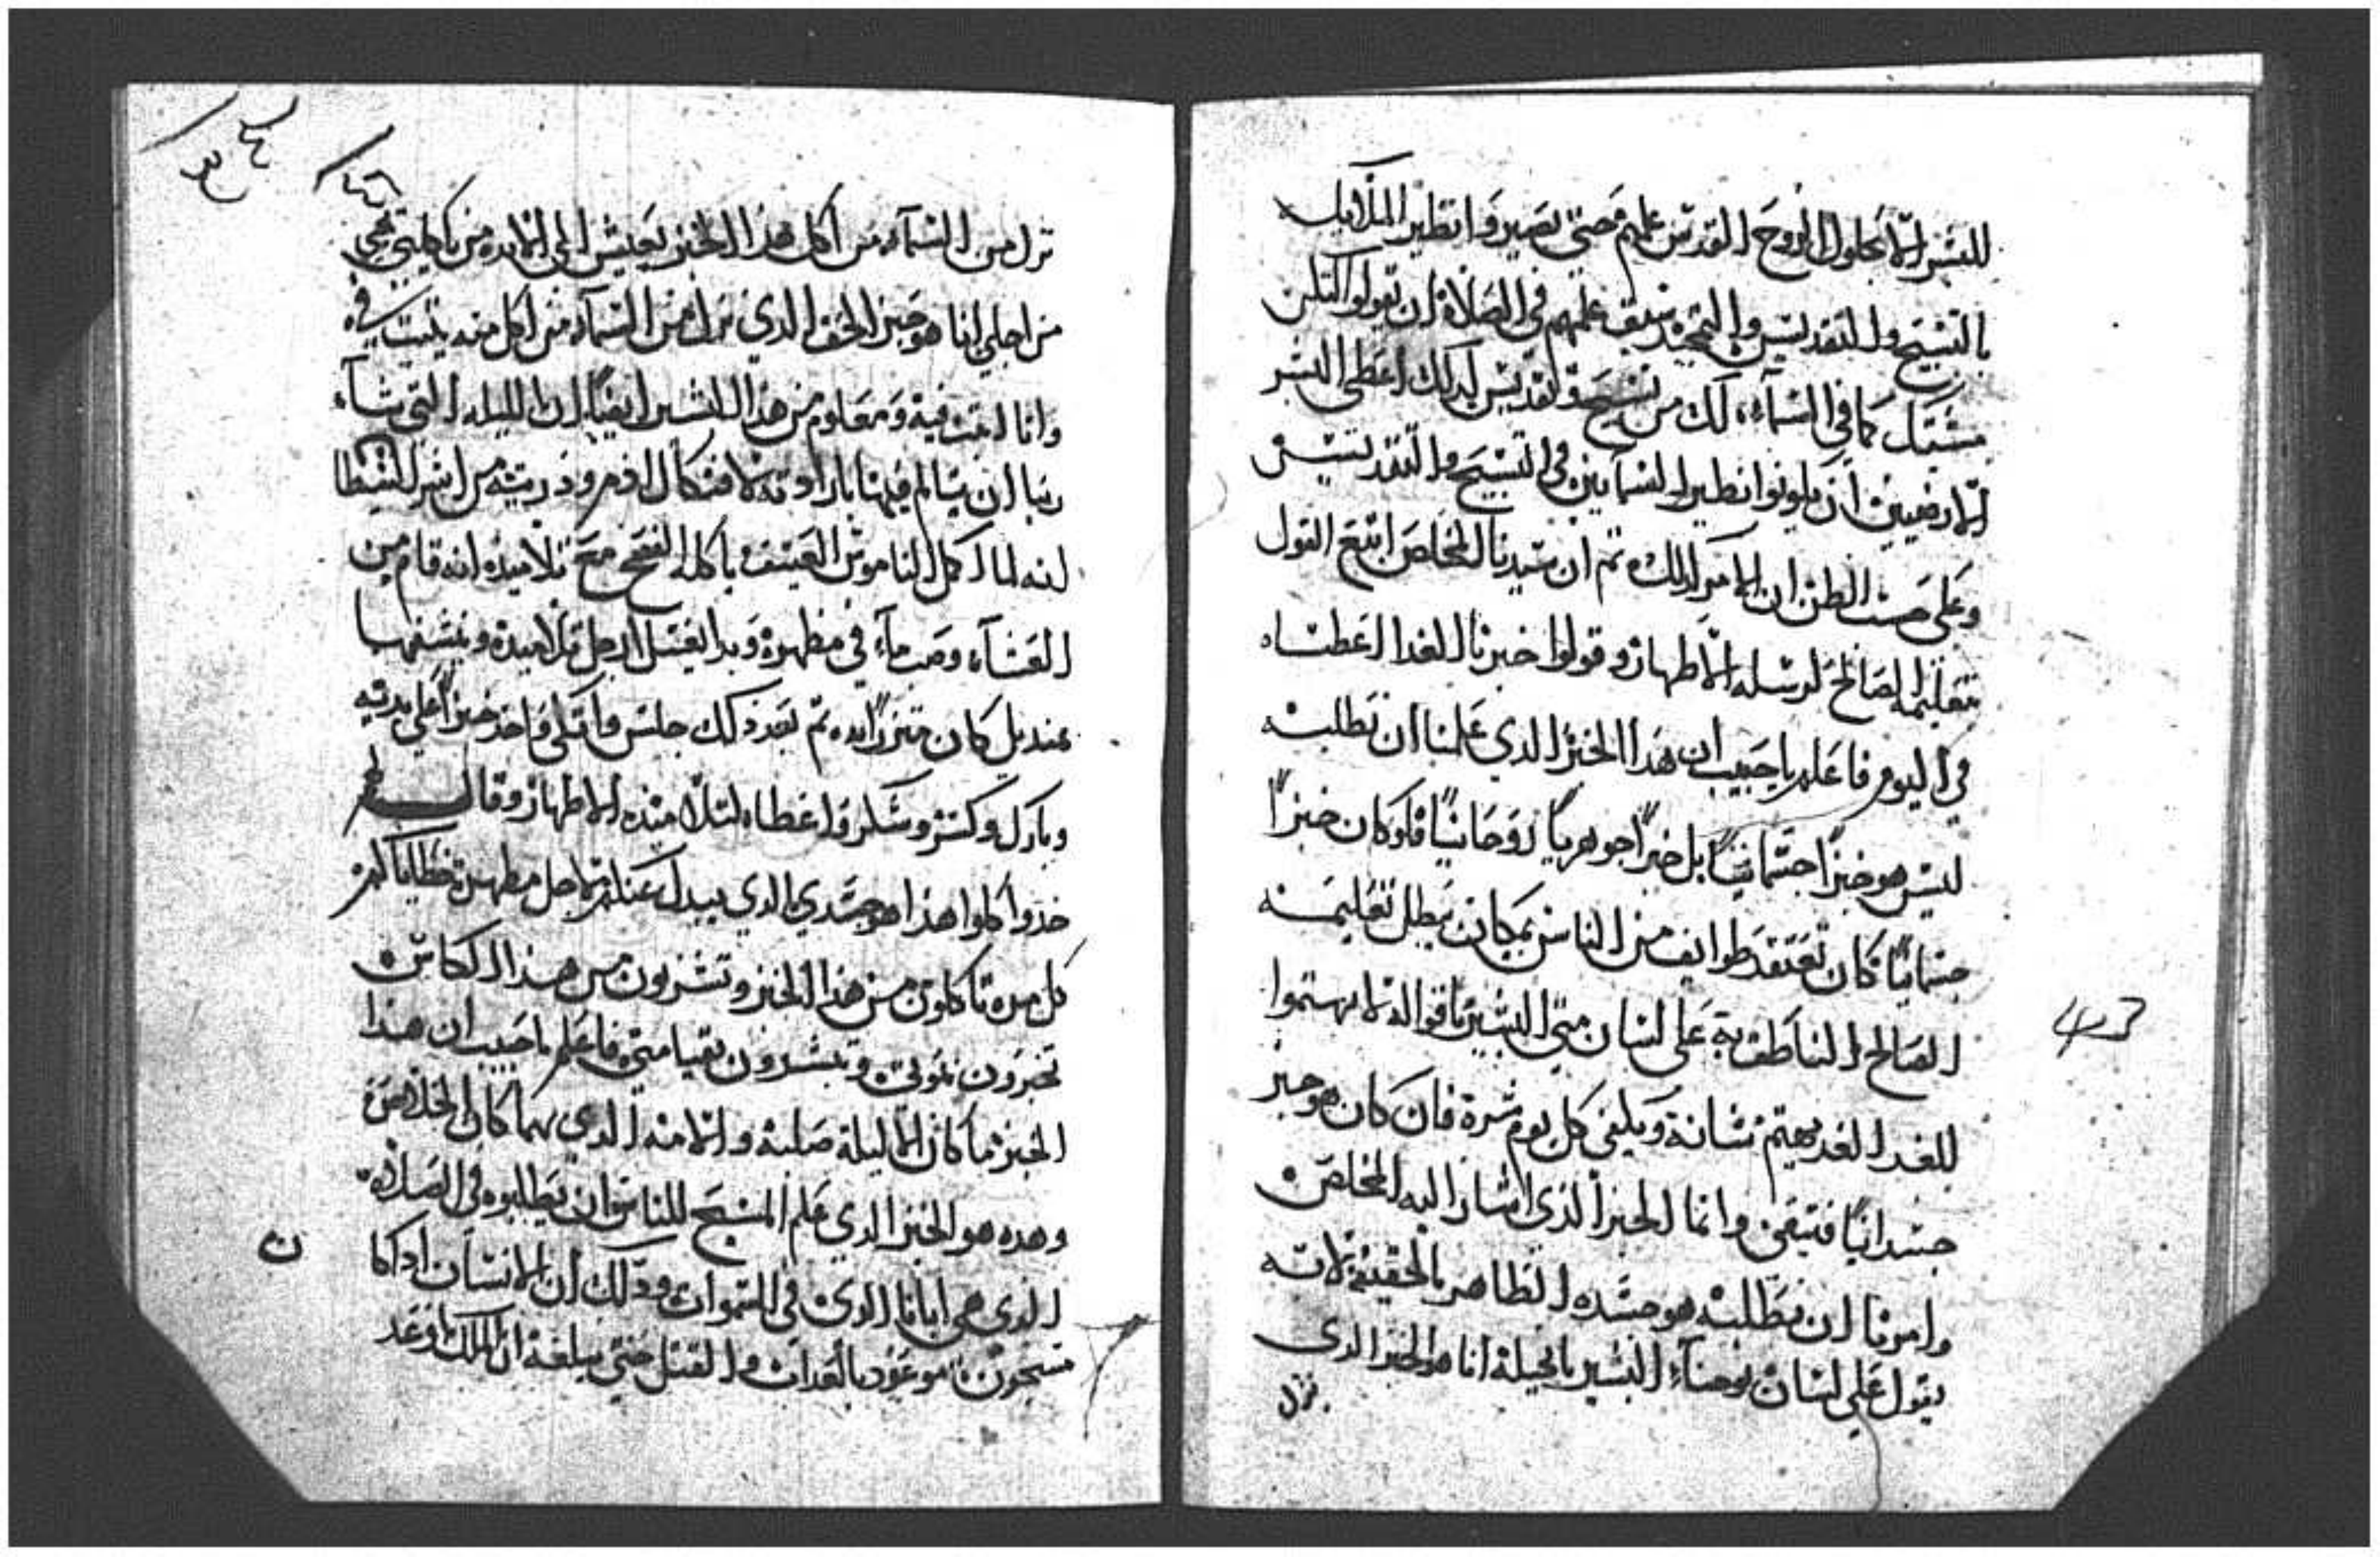 للبشر الا بحلول الروح القدس عليهم حتى يصيروا نظير الملايك
بالتسبيح والتقديس والتمجيد سبق علمهم في الصلاة ان يقولوا لتكن
مشيتك كما في السماء، لك من تسبيح وتقديس كدلك اعطي البشر
الارضيين ان يكونوا نظير السمايين في التسبيح والتقديس
وعلى حسب الظن ان الامر كدلك ثم ان سيدنا المخلص اتبع القول
بتعليمه الصالح لرسله الاطهار وقولوا خبزنا للغدا اعطناه
في اليوم فاعلم يا حبيب ان هدا الخبز الدي علمنا ان نطلبه
ليس هو خبزاً جسمانياً بل خبزاً جوهرياً روحانياً فلو كان خبزاً
جسمانياً كان تعتقد طوايف من الناس بمكان يبطل تعليمه
الصالح الناطق به على لسان متى البشير باقواله لا تهتموا
للغد الغد يهتم بشانه ويكفي كل يوم شره فان كان هو خبز
جسدانياً وانما الخبز الذي اشار اليه المخلص
وامرنا ان نطلبه هو جسده الطاهر بالحقيقه لانه
يقول على لسان يوحنا البشير بانجيله انا هو الخبز الدي
نزل
43
نزل من السماء من اكل هذا الخبز يعيش الى الابد من ياكلني يحيى
من اجلي انا هو خبز الحق الدي نزل من السماء من اكل منه يثبت فيّ
وانا اثبت فيه ومعلوم من هذا السر ايضاً ان الليله التي شاء
ربنا ان يتالم فيها بارادته لافتكاك ادم ودريته من اسر الشيطا
انه لما اكمل الناموس العتيق باكله الفصح مع تلاميذه انه قام من
العشاء وصب ماء في مطهره وبدا يغسل ارجل تلاميده وينشفها
بمنديل كان متزراً به، ثم بعد ذلك جلس واتكى واخد خبزاً على يديه
وبارك وكسر وشكر واعطاه لتلاميذه الاطهار وقال لهم
خذوا كلوا هذا هو جسدي الدي يبدل عنكم لاجل مطهرة خطاياكم
كل مره تاكلون من هذا الخبز وتشربون من هذا الكاس
تخبرون بموتي وتبشرون بقيامتي فاعلم يا حبيب ان هذا
الخبز ما كان الا ليلة صلبه والامه الدي بهما كان الخلاص
وهده هو الخبز الدي علم المسيح للناس ان يطلبوه في الصلاة
الدي هي ابانا الدي في السموات ودلك ان الانسان اداكا
ن
مسجون موعود بالعداب والقتل حتى يبلغه ان الملك وعد